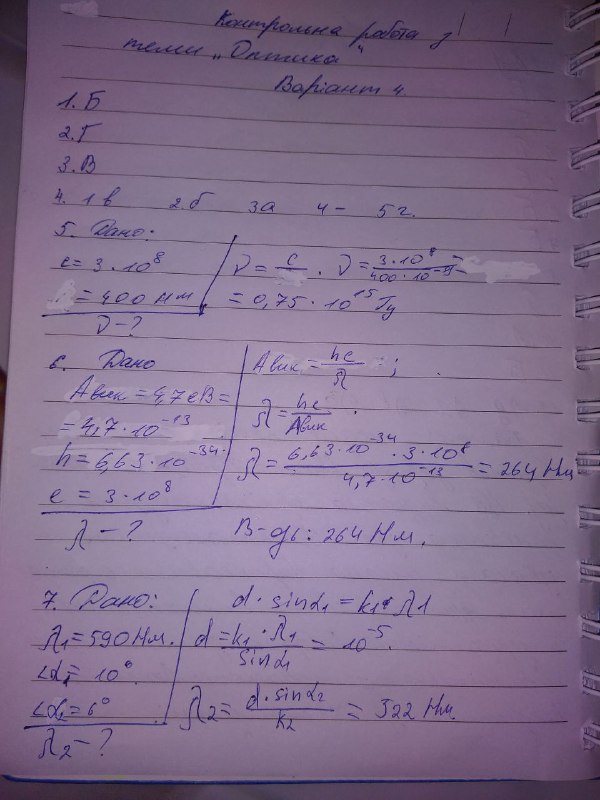 Контрольна робота з
теми „Оптика"
Варіант 4.
1. Б
2. Г
3. В
4. 1 в 2. б 3а 4 - 5 г.
5. Дано:
c = 3 · 10⁸
= 400 нм
ν - ?
ν = c/λ . ν = 3·10⁸/400·10⁻⁹
= 0,75 · 10¹⁵ Гц
6. Дано
Aвик = 4,7 еВ =
= 4,7 · 10⁻¹³
h = 6,63 · 10⁻³⁴
c = 3 · 10⁸
λ - ?
Aвик = hc/λ ;
λ = hc/Aвик .
λ = 6,63·10⁻³⁴ · 3·10⁸/4,7·10⁻¹³ = 264 Нм
В-дь: 264 Нм.
7. Дано:
λ1 = 590 Нм.
∠α1 = 10°
∠α2 = 6°
λ2 - ?
d · sinα1 = k1 · λ1
d = k1 · λ1/sinα1 = 10⁻⁵.
λ2 = d · sinα2/k2 = 322 Нм.